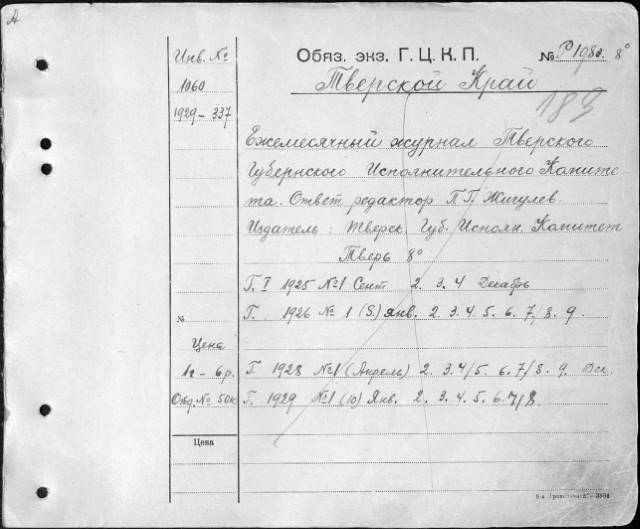 А
Инв. №
1060
1929-337
№
Цена
1г - 6 р.
Отд. № 50к
Цена
Обяз. экз. Г. Ц. К. П. № Р1980. 8°
Тверской Край
189
Ежемесячный журнал Тверского
Губернского Исполнительного Комите-
та. Ответ. редактор П.П. Жигулев.
Издатель: Тверск. Губ. Исполн. Комитет
Тверь 8°
Г. I 1925 №1 Сент 2. 3. 4 Декабрь
Г. 1926 № 1 (5) янв. 2. 3. 4. 5. 6. 7/8. 9.
Г. 1928 №1 (Апрель) 2. 3. 4/5. 6. 7/8. 9. Дек.
Г. 1929 №1 (10) Янв. 2. 3. 4. 5. 6. 7/8.